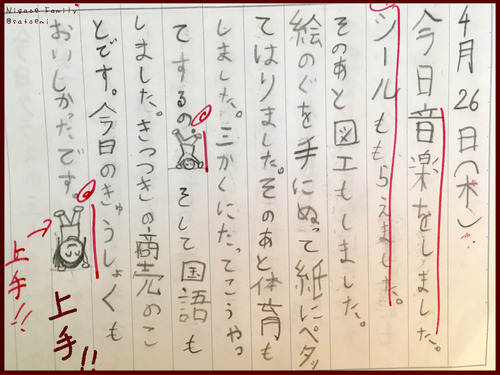 Nigaoe Family
@satoemi
4月26日(木)
今日音楽をしました。
シールももらえました。
そのあと図工もしました。
絵のぐを手にぬって紙にペタッ
てはりました。そのあと体育も
しました。三かくにたってこうやっ
てするの。そして国語も
しました。きつつきの商売のこ
とです。今日のきゅうしょくも
おいしかったです。
上手!!
上手!!